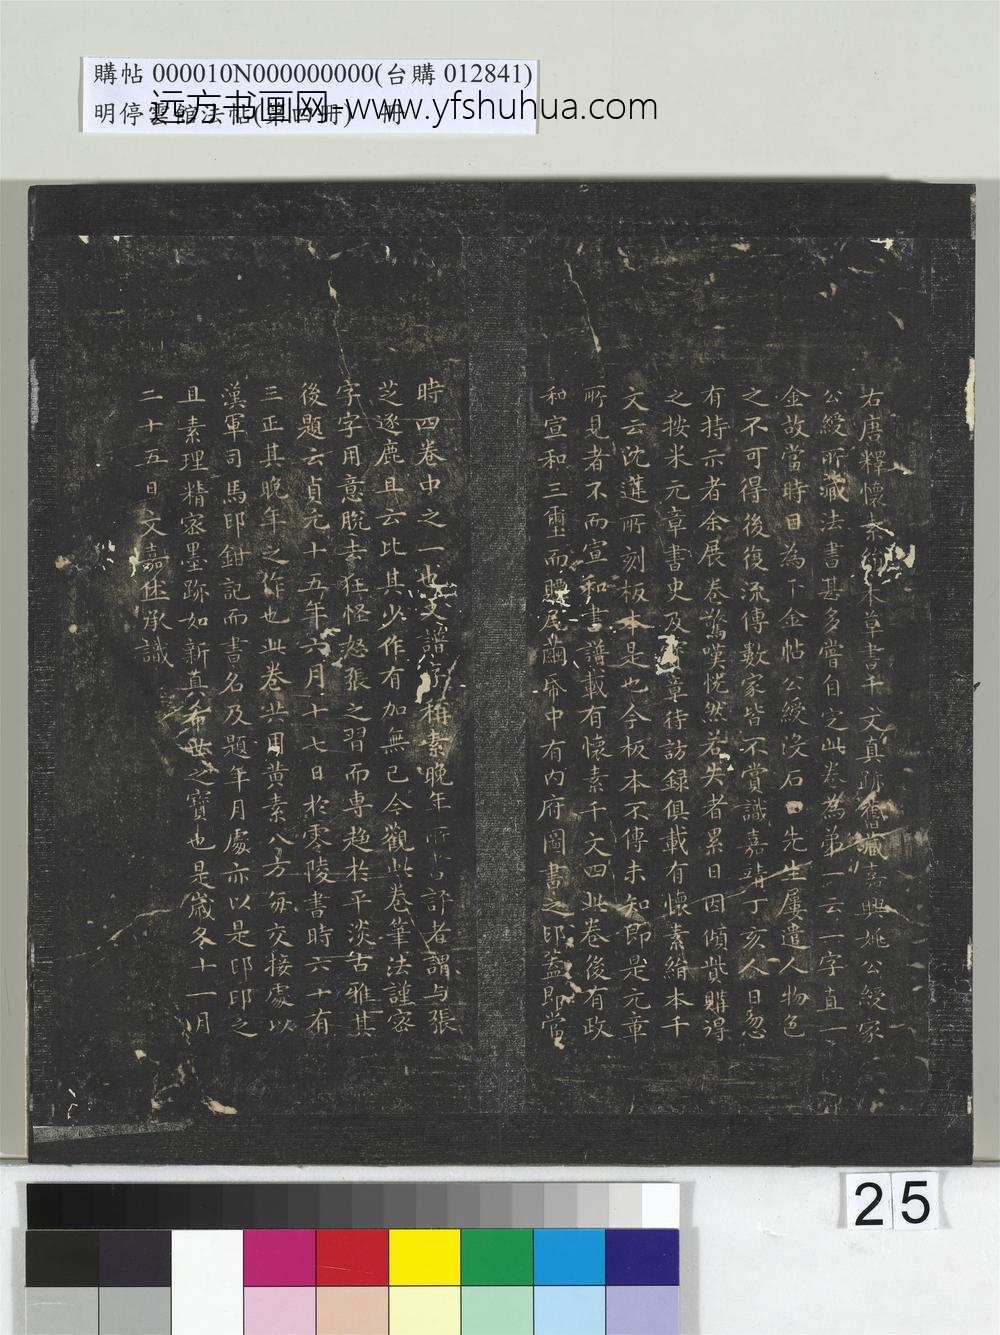 購帖 000010N000000000(台購 012841)
明停雲館法帖(第四冊) 冊
远方书画网-www.yfshuhua.com
右唐釋懷素絹本草書千文真跡舊藏嘉興姚公綬家
公綬所藏法書甚多嘗自定此卷為第一云一字直一
金故當時目為千金帖公綬沒石田先生屢遣人物色
之不可得後復流傳數家皆不賞識嘉靖丁亥人日忽
有持示者余展卷驚嘆恍然若失者累日因傾貲購得
之按米元章書史及元章待訪録俱載有懷素絹本千
文云沈遘所刻板本是也今板本不傳未知即是元章
所見者不而宣和書譜載有懷素千文四此卷後有政
和宣和三璽而腰尾繭帋中有内府圖書之印蓋即當
時四卷中之一也又譜序稱素晚年所書評者謂与張
芝逐鹿且云比其少作有加無已今觀此卷筆法謹密
字字用意脫去狂怪怒張之習而專趨於平淡古雅其
後題云貞元十五年六月十七日於零陵書時六十有
三正其晚年之作也此卷共用黄素八方每交接處以
漢軍司馬印鉗記而書名及題年月處亦以是印印之
且素理精密墨跡如新真希世之寶也是歲冬十一月
二十五日文嘉休承識
25